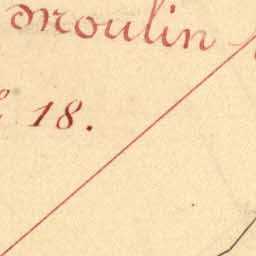 moulin
18.